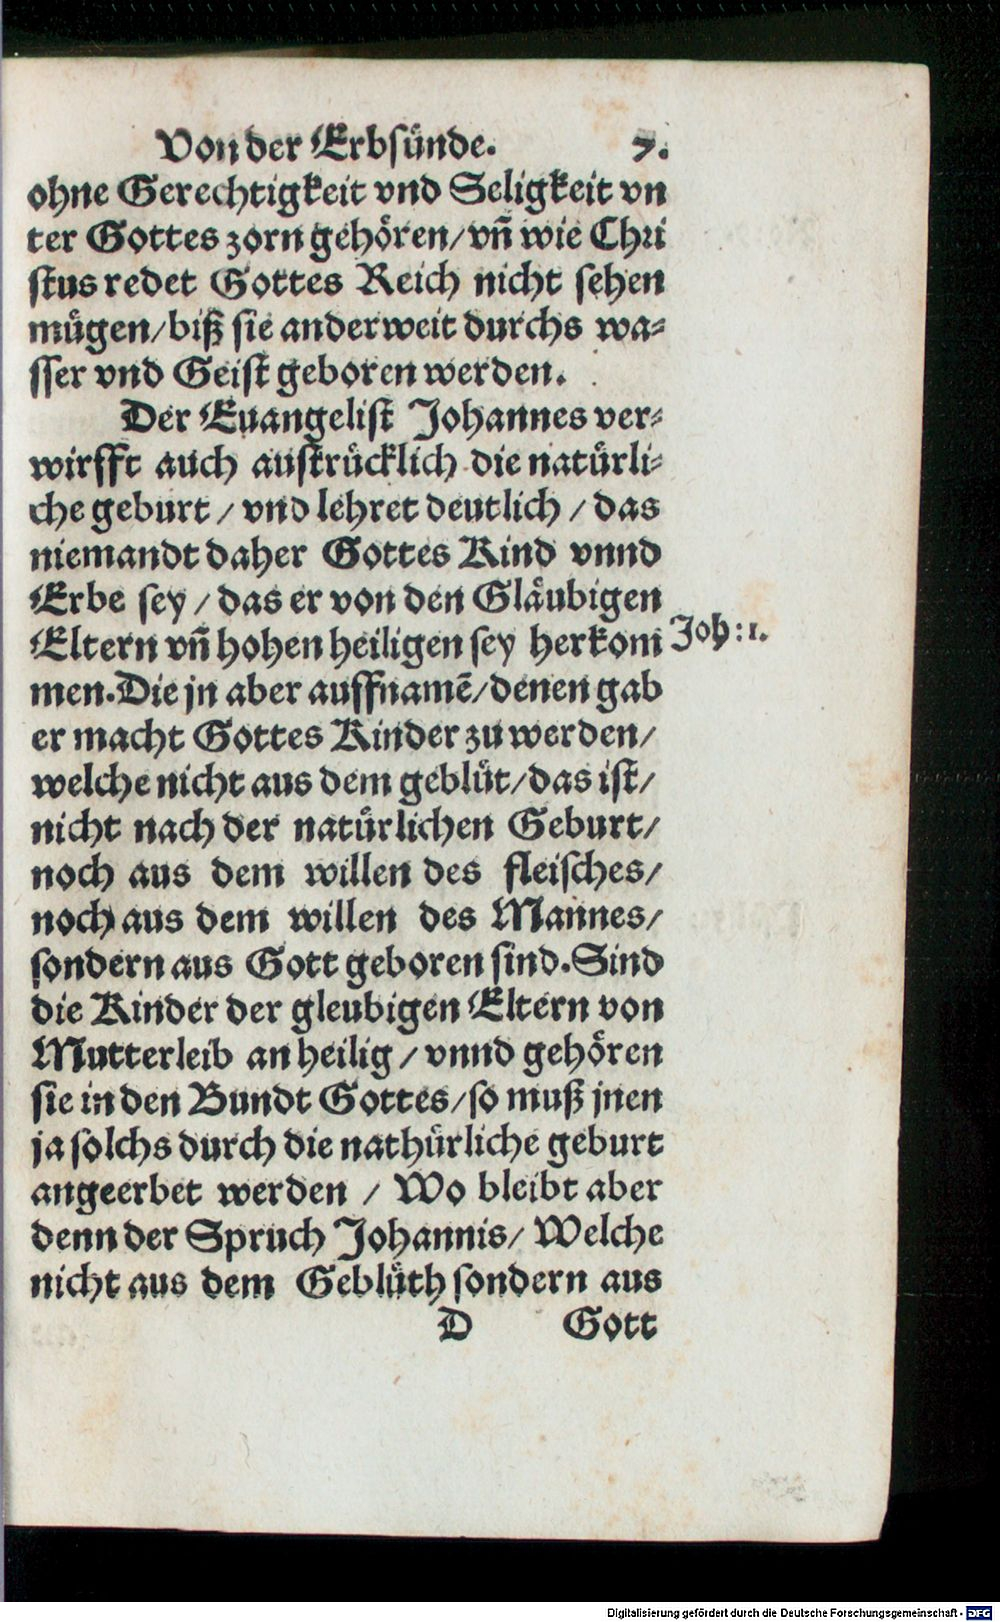 Von der Erbsünde. 7.
ohne Gerechtigkeit vnd Seligkeit vn
ter Gottes zorn gehören/vn̄ wie Chri
stus redet Gottes Reich nicht sehen
mügen/biß sie anderweit durchs wa-
sser vnd Geist geboren werden.
Der Euangelist Johannes ver-
wirfft auch austrücklich die natürli-
che geburt / vnd lehret deutlich / das
niemandt daher Gottes Kind vnnd
Erbe sey / das er von den Gläubigen
Eltern vn̄ hohen heiligen sey herkom
Joh: 1.
men. Die jn aber auffnamē/denen gab
er macht Gottes Kinder zu werden/
welche nicht aus dem geblüt/das ist/
nicht nach der natürlichen Geburt/
noch aus dem willen des fleisches/
noch aus dem willen des Mannes/
sondern aus Gott geboren sind. Sind
die Kinder der gleubigen Eltern von
Mutterleib an heilig / vnnd gehören
sie in den Bundt Gottes/so muß jnen
ja solchs durch die nathürliche geburt
angeerbet werden / Wo bleibt aber
denn der Spruch Johannis/ Welche
nicht aus dem Geblüth sondern aus
D Gott
Digitalisierung gefördert durch die Deutsche Forschungsgemeinschaft - DFG